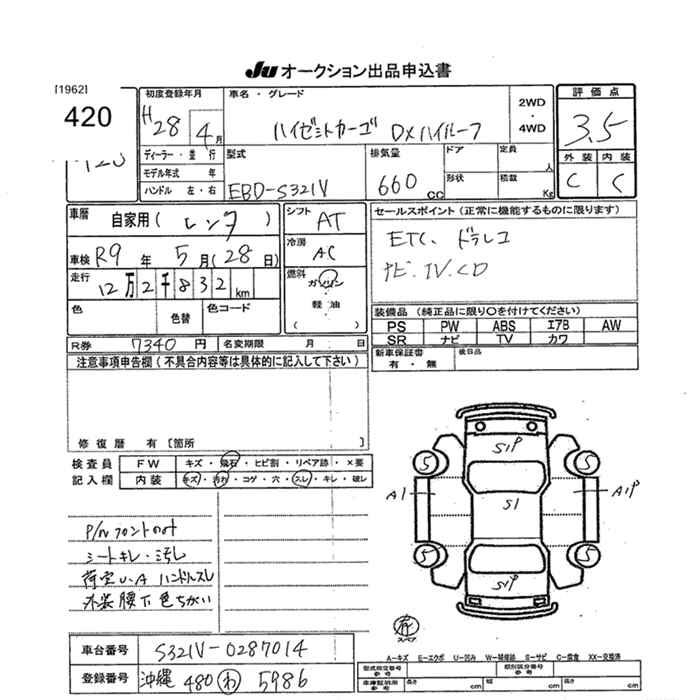 Ju オークション出品申込書
[1962]
420
初度登録年月
H28 4月
車名・グレード
ハイゼットカーゴ DXハイルーフ
2WD
・
4WD
評価点
3.5
外装 内装
C C
ディーラー・並行
モデル年式 年
ハンドル 左・右
型式
EBD-S321V
排気量
660 cc
ドア
形状
定員 人
積載 Kg
車暦 自家用(レンタ)
車検 R9年 5月(28日)
走行 12万2千832km
色 色替 色コード
シフト AT
冷房 AC
燃料
ガソリン
軽油
( )
セールスポイント(正常に機能するものに限ります)
ETC、ドラレコ
ナビ、TV、CD
装備品(純正品に限り○を付けてください)
PS PW ABS エアB AW
SR ナビ TV カワ
新車保証書
有・無
後日品
R券 7340円 名変期限 月 日
注意事項申告欄(不具合内容等は具体的に記入して下さい)
修復暦 有[箇所 ]
検査員 FW キズ・飛石・ヒビ割・リペア跡・×要
記入欄 内装 キズ・汚れ・コゲ・穴・スレ・キレ・破レ
P/Wフロントのみ
シートキレ・汚レ
荷室U、A ハンドルスレ
外装腰下色ちがい
S1P
5 5
A1 S1 A1P
5 5
S1P
有
スペア
A-キズ E-エクボ U-凹み W-補修跡 S-サビ C-腐食 XX-交換済
車台番号 S321V-0287014
登録番号 沖縄 480 わ 5986
型式指定番号 参考
類別区分番号 参考
車庫証明用 参考
長さ cm 幅 cm 高さ cm